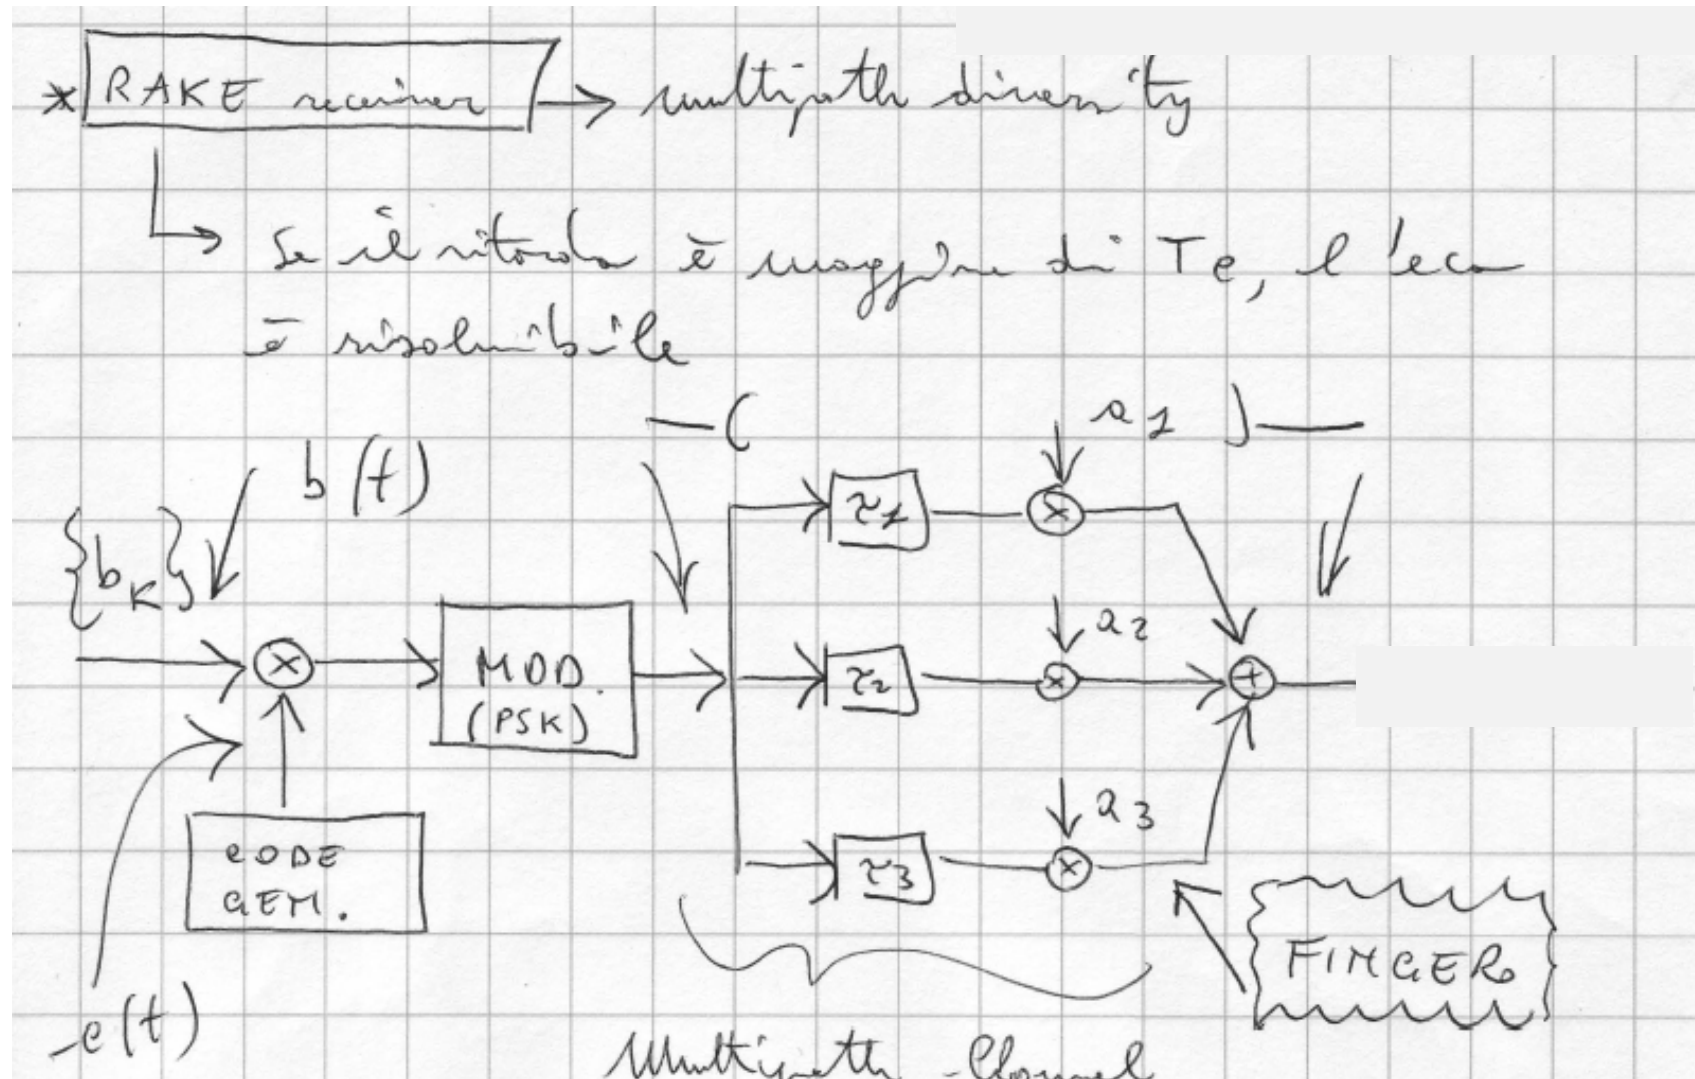 * RAKE receiver → multipath diversity
→ Se il ritardo è maggiore di Tc, l'eco
è risolvibile
—( a1 )—
b(t)
τ1
{bK}
a2
MOD.
(PSK)
τ2
a3
CODE
GEN.
τ3
FINGER
c(t)
Multipath Channel